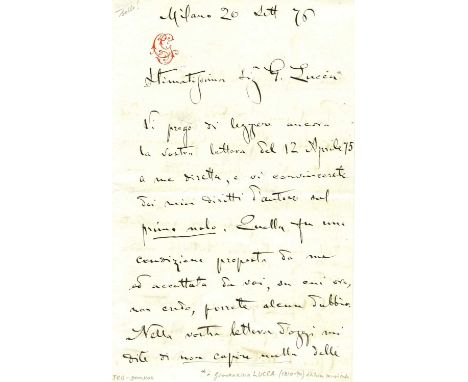 Milano 20 Sett 76
G
Stimatissima Sig.ª G. Lucca
Vi prego di leggere ancora
la vostra lettera del 12 Aprile 75
a me diretta, e vi convincerete
dei miei diritti d'autore sul
primo nolo. Quella fu una
condizione proposta da me
ed accettata da voi, su cui ora,
non credo, porrete alcun dubbio.
Nella vostra lettera d'oggi mi
dite di non capire nulla delle
Giovannina LUCCA